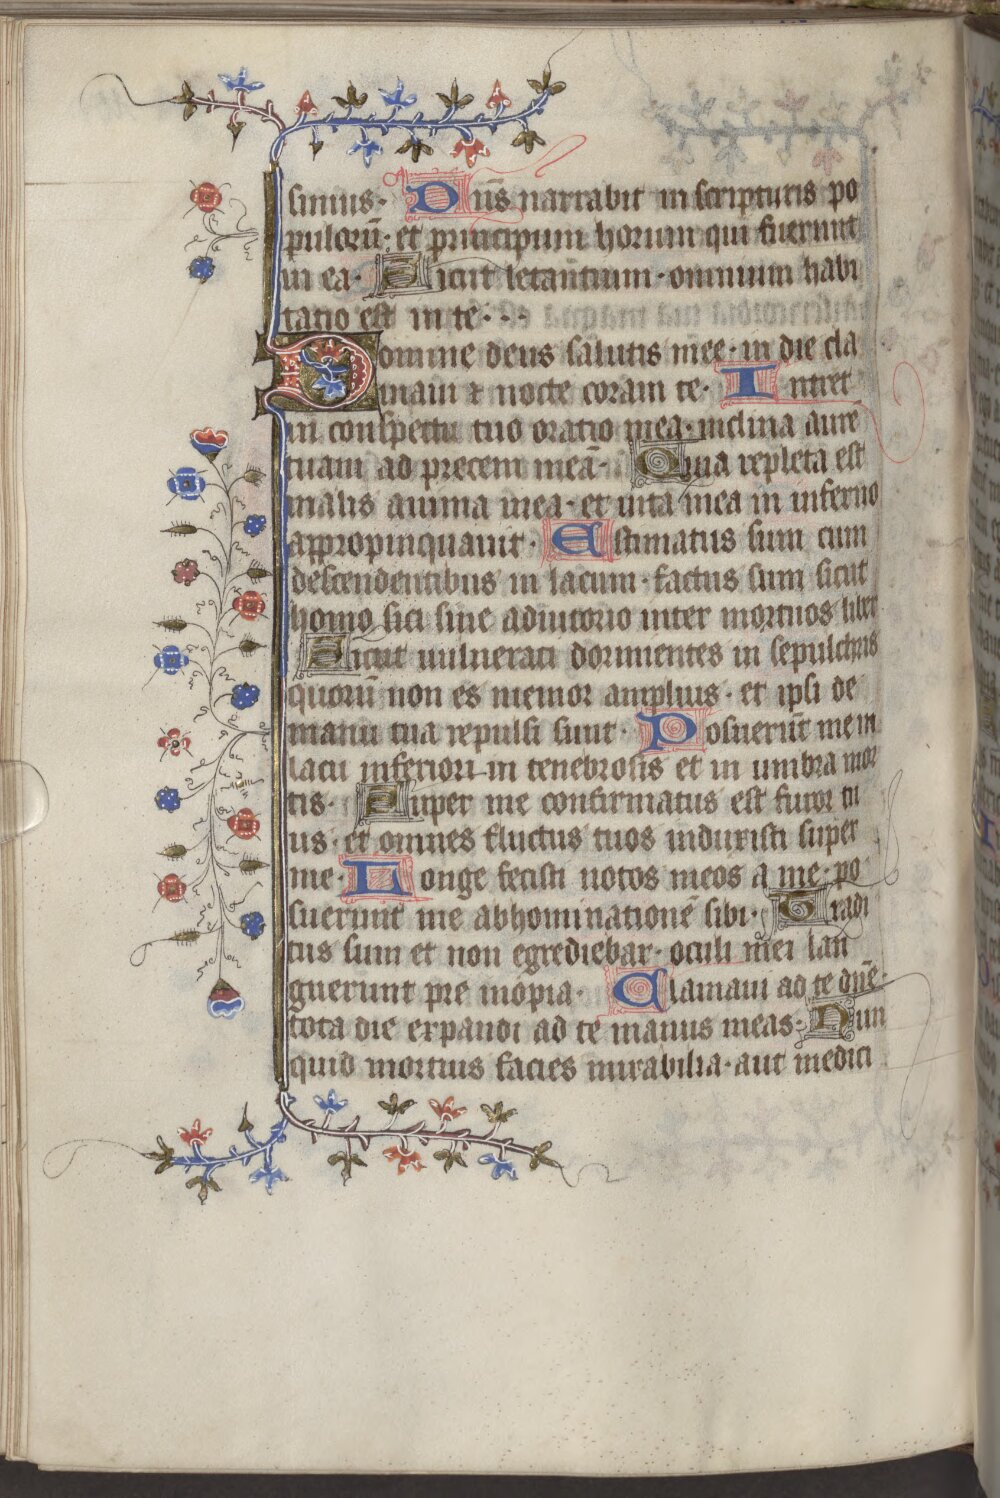 simus· Dn̄s narrabit in scripturis po
pulorū· et principum horum qui fuerunt
in ea· Sicut letantium· omnium habi
tatio est in te·
Domine deus salutis mee· in die cla
maui ⁊ nocte coram te· Intret
in conspectu tuo oratio mea· inclina aure
tuam ad precem meā· Quia repleta est
malis anima mea· et uita mea in inferno
appropinquauit· Estimatus sum cum
descendentibus in lacum· factus sum sicut
homo sici sine adiutorio inter mortuos liber
Sicut uulnerati dormientes in sepulchris
quorū non es memor amplius· et ipsi de
manu tua repulsi sunt· Posuerūt me in
lacu inferiori in tenebrosis et in umbra mor
tis· Super me confirmatus est furor tu
us· et omnes fluctus tuos induxisti super
me· Longe fecisti notos meos a me· po
suerunt me abhominationē sibi· Tradi
tus sum et non egrediebar· oculi mei lan
guerunt pre inopia· Clamaui ad te dn̄e·
tota die expandi ad te manus meas· Nun
quid mortuis facies mirabilia· aut medici